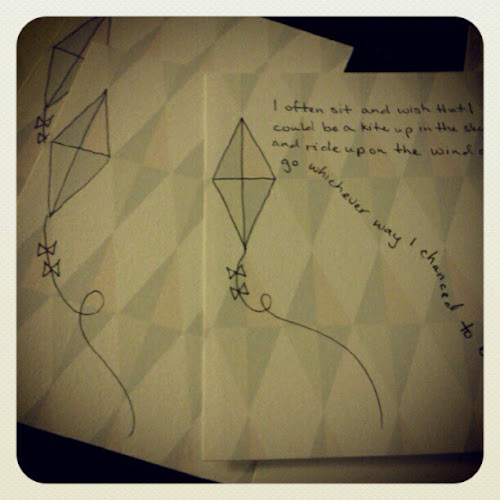 I often sit and wish that I
could be a kite up in the
and ride upon the wind
go whichever way I chanced to